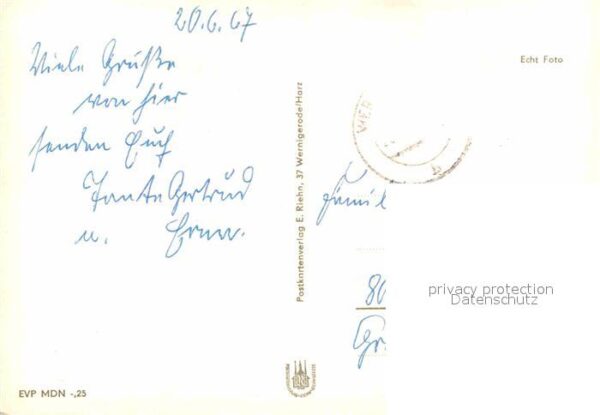 20.6.67
Viele Grüße
von hier
senden Euch
Tante Gertrud
u. Erna.
Postkartenverlag E. Riehn, 37 Wernigerode/Harz
Echt Foto
WER
Famil
80
Gr
privacy protection
Datenschutz
EVP MDN -,25